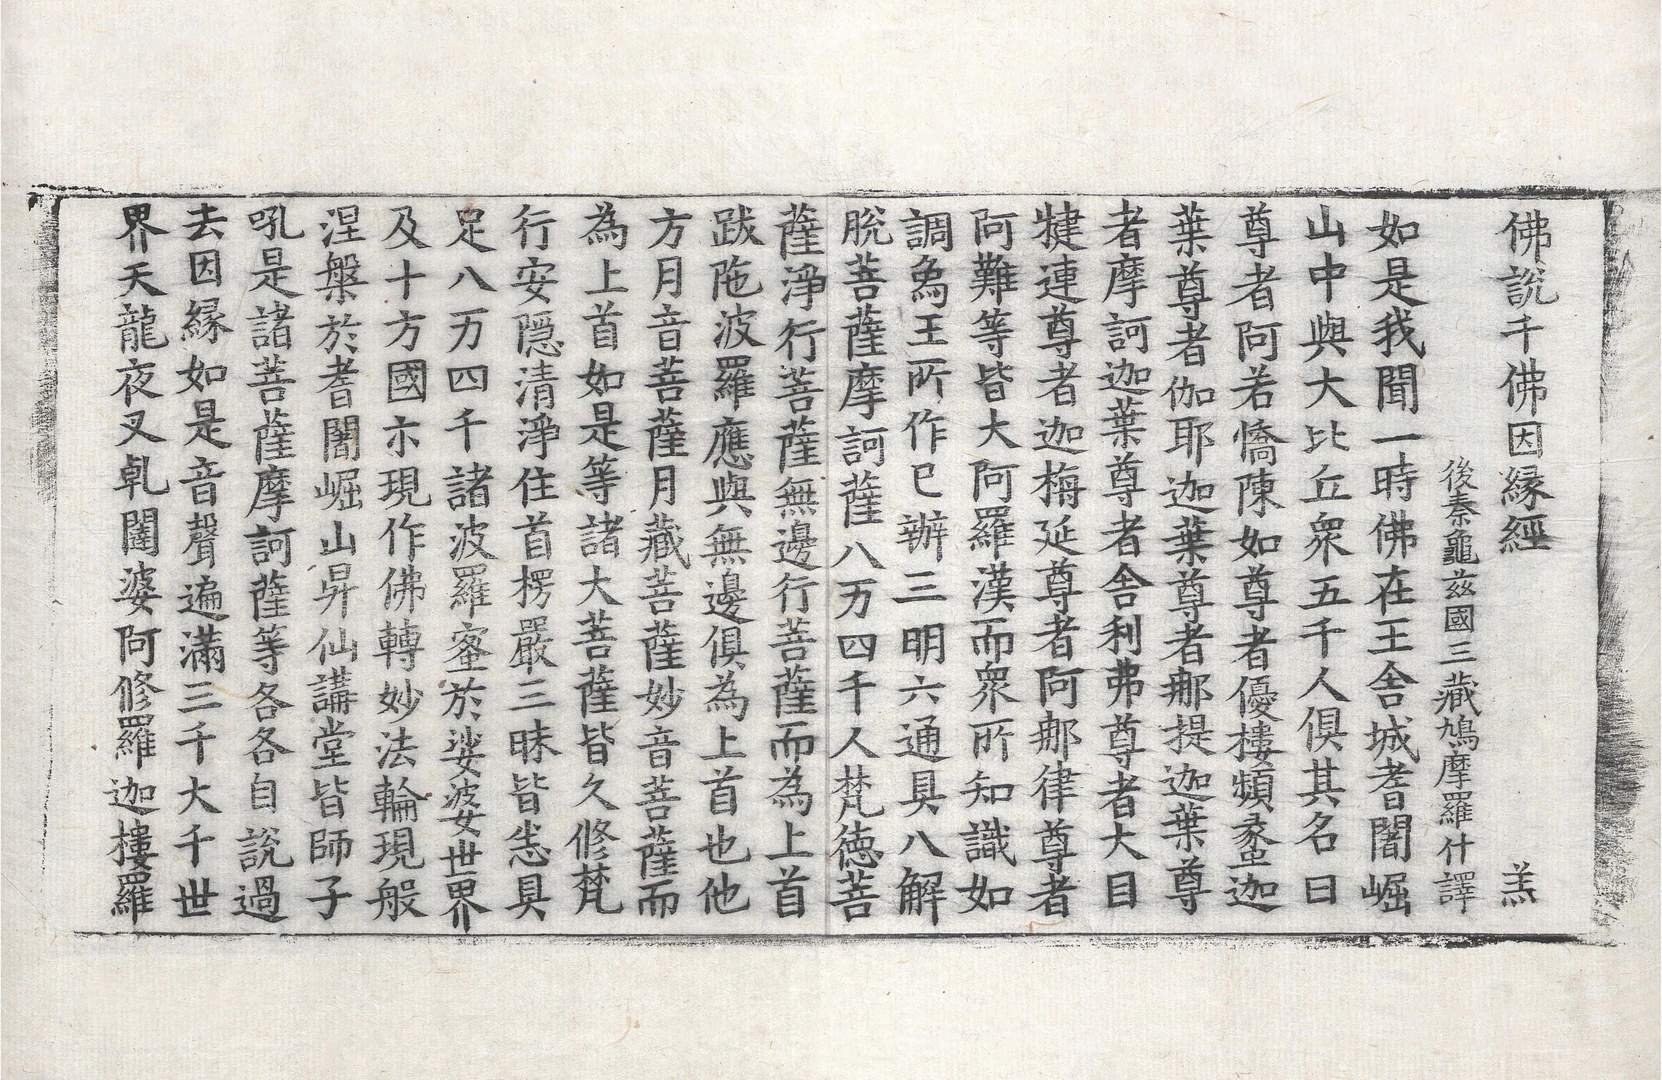 佛說千佛因縁經 羔
後秦龜茲國三藏鳩摩羅什譯
如是我聞一時佛在王舍城耆闍崛
山中與大比丘衆五千人俱其名曰
尊者阿若憍陳如尊者優樓頻蠡迦
葉尊者伽耶迦葉尊者那提迦葉尊
者摩訶迦葉尊者舍利弗尊者大目
犍連尊者迦栴延尊者阿那律尊者
阿難等皆大阿羅漢而衆所知識如
調為王所作已辦三明六通具八解
脫菩薩摩訶薩八万四千人梵德菩
薩淨行菩薩無邊行菩薩而為上首
跋陁波羅應與無邊俱為上首也他
方月音菩薩月藏菩薩妙音菩薩而
為上首如是等諸大菩薩皆久修梵
行安隱清淨住首楞嚴三昧皆悉具
足八万四千諸波羅蜜於娑婆世界
及十方國示現作佛轉妙法輪現般
涅槃於耆闍崛山昇仙講堂皆師子
吼是諸菩薩摩訶薩等各各自說過
去因縁如是音聲遍滿三千大千世
界天龍夜叉乹闥婆阿修羅迦樓羅